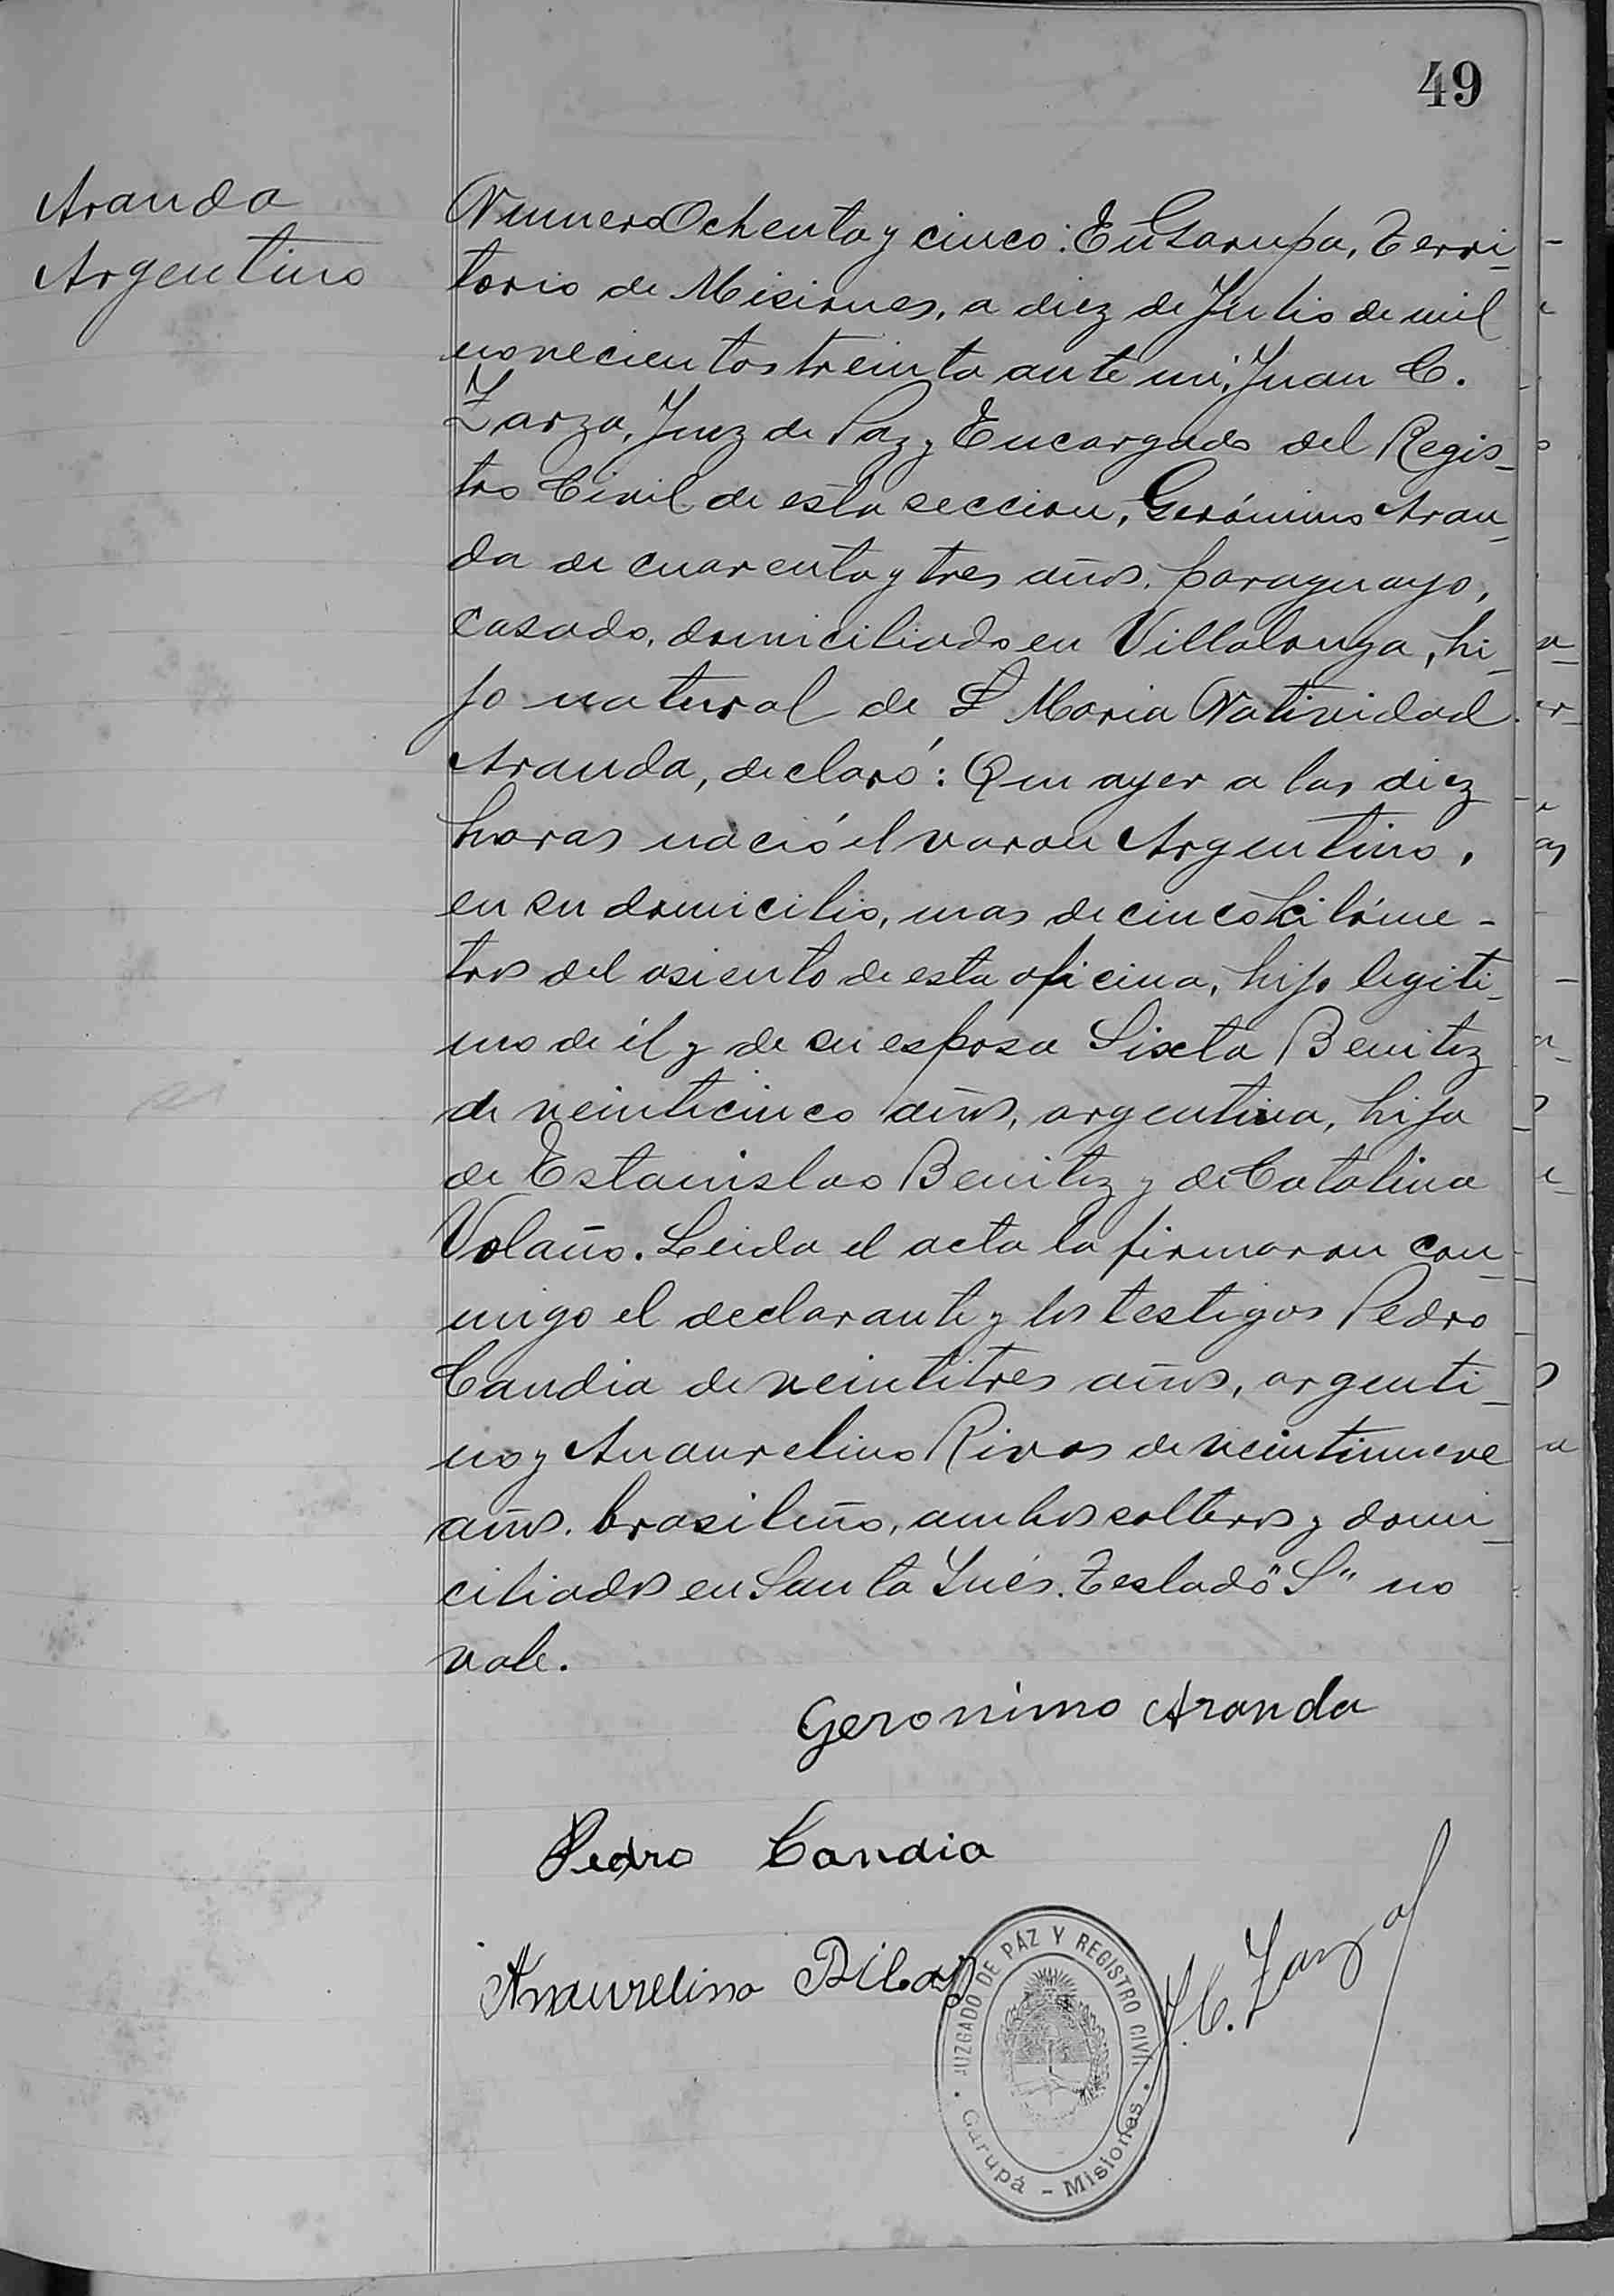 49
Aranda
Argentino
Numero Ochenta y cinco: En Garupa, Terri-
torio de Misiones, a diez de Julio de mil
novecientos treinta ante mi, Juan C.
Zarza, Juez de Paz y Encargado del Regis-
tro Civil de esta seccion, Gerónimo Aran-
da de cuarenta y tres años, paraguayo,
casado, domiciliado en Villalonga, hi-
jo natural de S Maria Natividad
Aranda, declaró: Que ayer a las diez
horas nació el varon Argentino,
en su domicilio, mas de cinco kilóme-
tros del asiento de esta oficina, hijo legiti-
mo de él y de su esposa Sixta Benitez
de veinticinco años, argentina, hija
de Estanislao Benitez y de Catalina
Volaño. Leida el acta la firmaron con-
migo el declarante y los testigos Pedro
Candia de veintitres años, argenti-
no y Anaurelino Rivas de veintinueve
años, brasileño, ambos solteros y domi-
ciliados en Santa Inés. Testado "S" no
vale.
Geronimo Aranda
Pedro Candia
Anaurelino Ribas
J. C. Zarza
JUZGADO DE PÁZ Y REGISTRO CIVIL
Garupá - Misiones